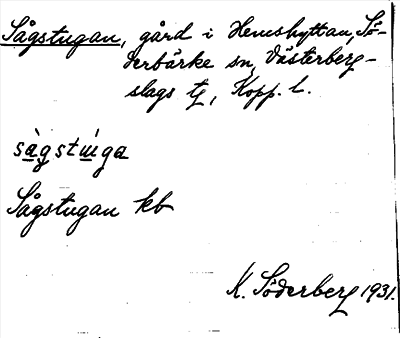 Sågstugan, gård i Hemshyttan, Sö-
derbärke sn, Västerberg-
slags tg, Kopp. l.
sågstuga
Sågstugan kb
K. Söderberg 1931.